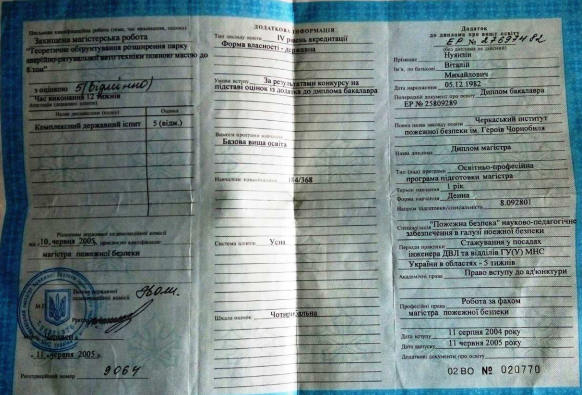 Захищена магістерська робота
"Теоретичне обґрунтування розширення парку
аварійно-рятувальної автотехніки повною масою до
з оцінкою 5 (відмінно)
Час виконання 12 тижнів
Назва дисципліни
Оцінка
Комплексний державний іспит
5 (відм.)
Рішенням державної
10 червня 2005
магістр пожежної безпеки
11 червня 2005
Реєстраційний номер
9064
ДОДАТКОВА ІНФОРМАЦІЯ
IV рівень акредитації
Форма власності - державна
Умови вступу
За результатами конкурсу на
підставі оцінок із додатка до диплома бакалавра
Базова вища освіта
Система оцінок
Усна
Шкала оцінок
Додаток
до диплома про вищу освіту
ЕР №
(без диплома не дійсний)
Прізвище
Нуянзін
Ім'я, по батькові
Віталій
Михайлович
Дата народження
05.12.1982
Попередній документ про освіту
Диплом бакалавра
ЕР № 25809289
Черкаський інститут
пожежної безпеки ім. Героїв Чорнобиля
Назва диплома
Диплом магістра
Тип (вид) програми
Освітньо-професійна
програма підготовки магістра
Термін навчання
1 рік
Форма навчання
Денна
Напрям підготовки/спеціальність
8.092801
Спеціалізація
"Пожежна безпека" науково-педагогічне
забезпечення в галузі пожежної безпеки
Періоди практики
Стажування у посадах
інженера ДВЛ та відділів ГУ(У) МНС
України в областях - 5 тижнів
Академічні права
Право вступу до ад'юнктури
Професійні права
Робота за фахом
магістр пожежної безпеки
Дата вступу
11 серпня 2004 року
Дата випуску
11 червня 2005 року
Додаткові документи про освіту
02 ВО № 020770